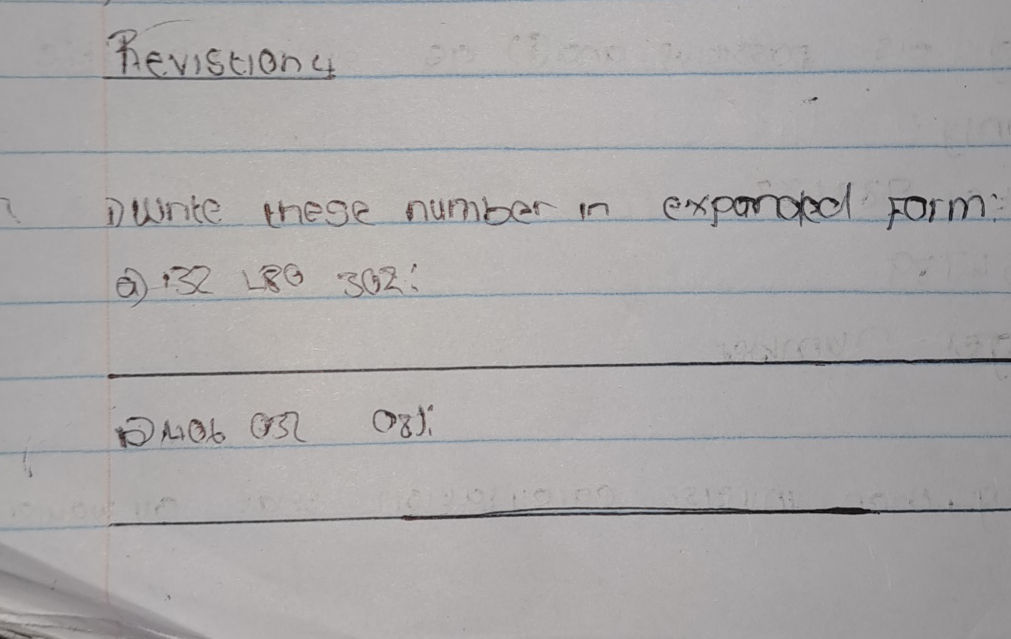 Revistion 4
1) Write these number in expanded Form:
a) 132 180 302:
b) 406 032 081: